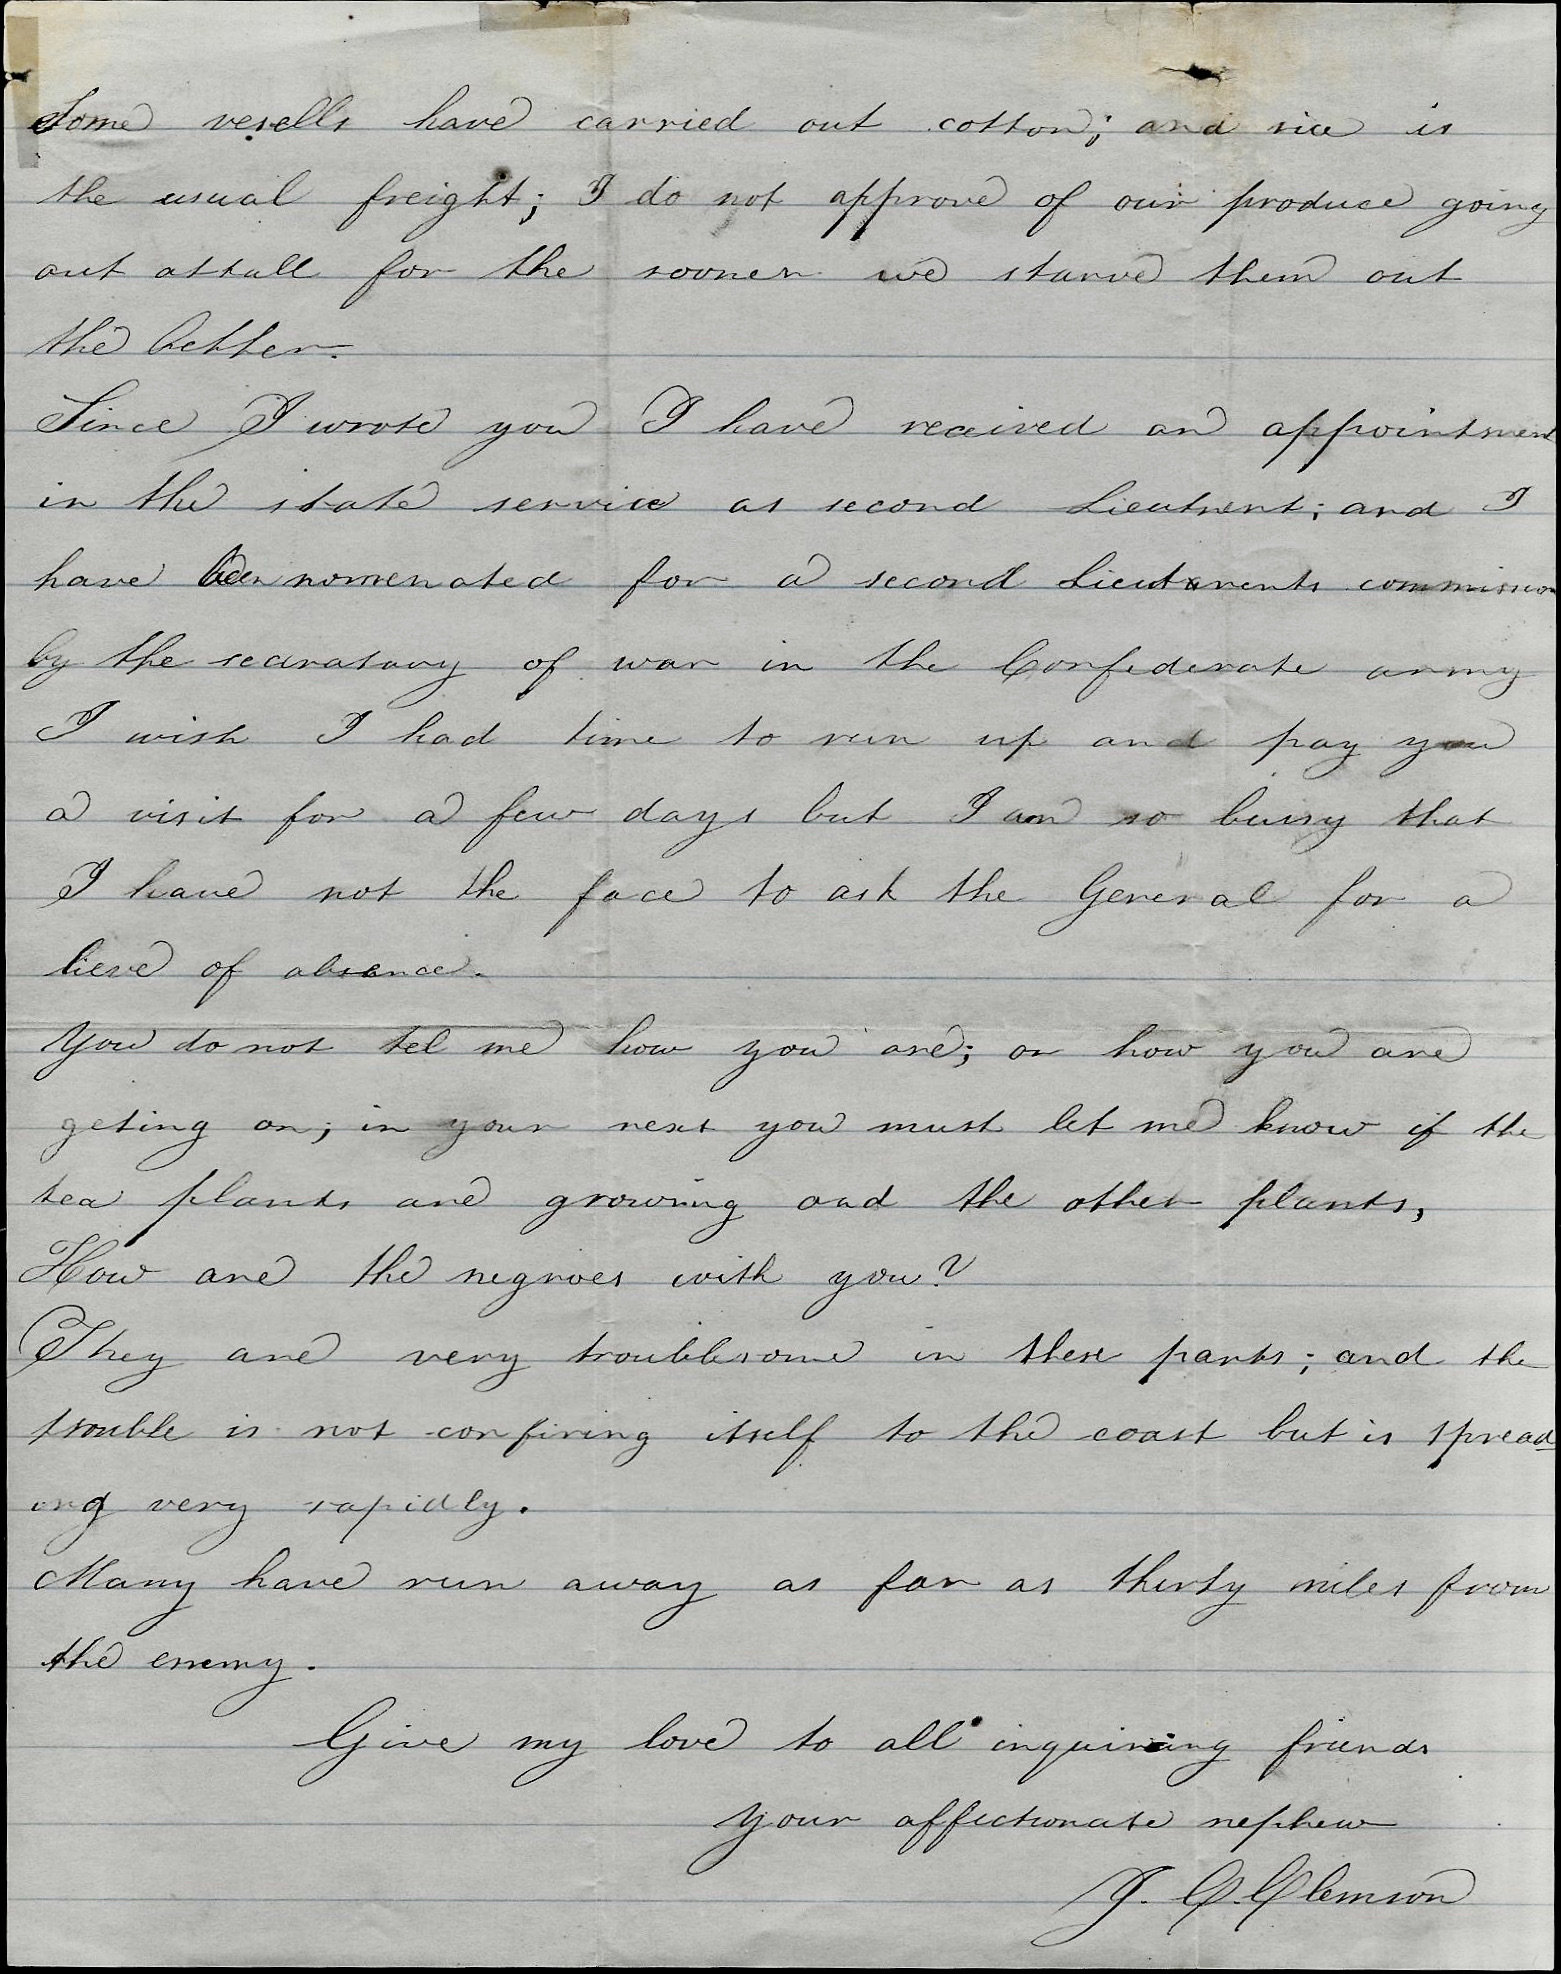 Some vesells have carried out cotton; and rice is
the usual freight; I do not approve of our produce going
out attall for the sooner we starve them out
the better.
Since I wrote you I have received an appointment
in the state service as second Lieutnent; and I
have been nomenated for a second Lieutenents commission
by the secaratary of war in the Confederate army
I wish I had time to run up and pay you
a visit for a few days but I am so buisy that
I have not the face to ask the General for a
lieve of absence.
You do not tel me how you are; or how you are
geting on; in your next you must let me know if the
tea plants are growing and the other plants,
How are the negroes with you?
They are very troublesome in these parts; and the
trouble is not confining itself to the coast but is spread
ing very rapidly.
Many have run away as far as thirty miles from
the enemy.
Give my love to all inquireing friends
Your affectionate nephew
J. C. Clemson